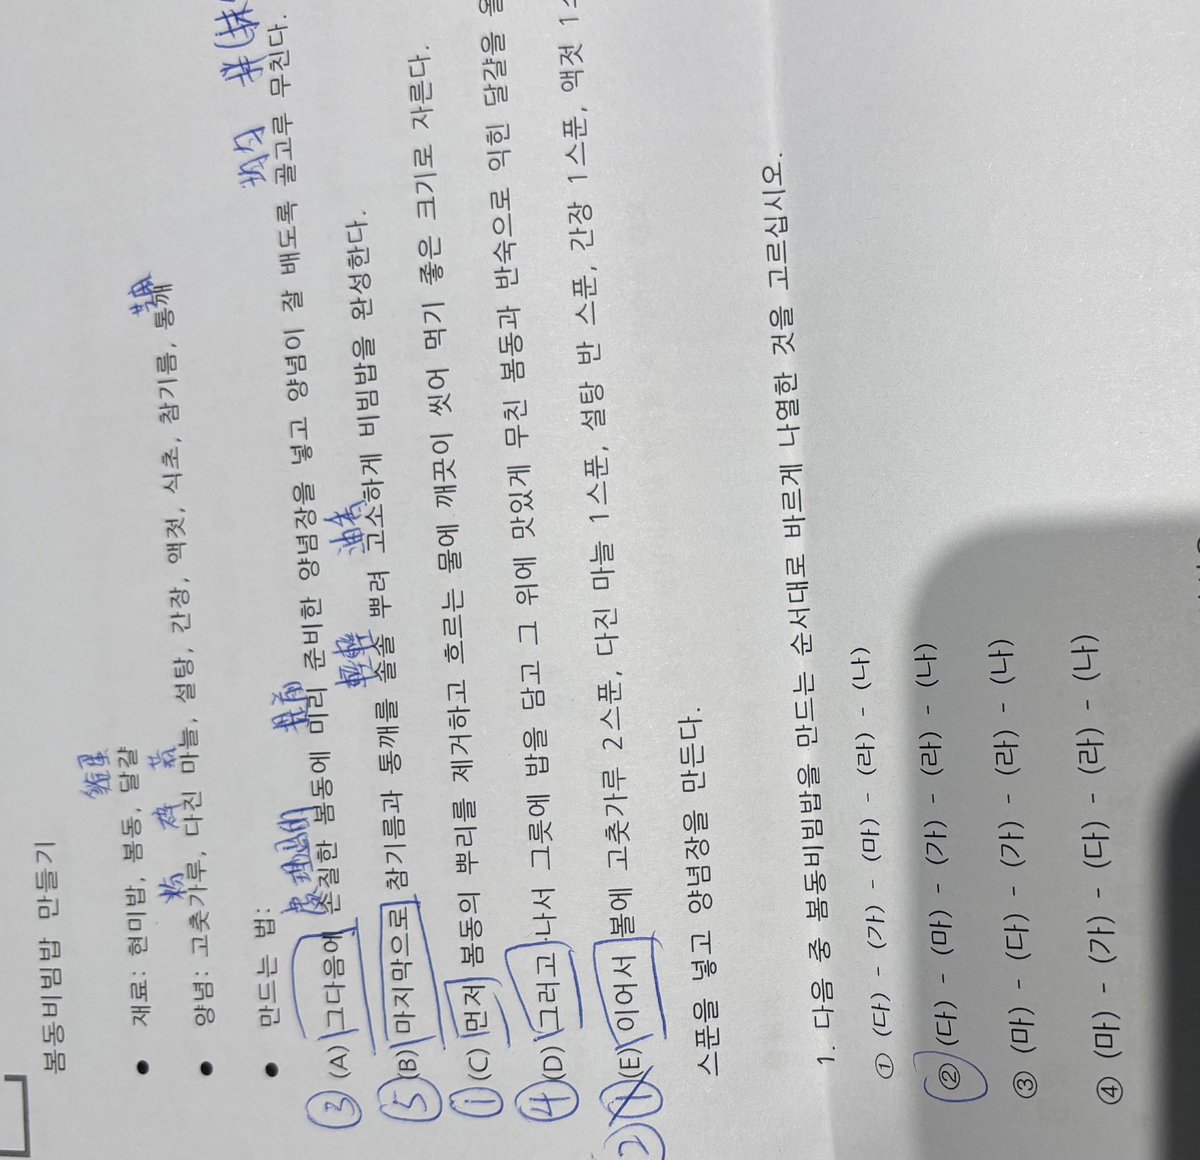 봄동비빔밥 만들기
● 재료: 현미밥, 봄동, 달걀
● 양념: 고춧가루, 다진 마늘, 설탕, 간장, 액젓, 식초, 참기름, 통깨
● 만드는 법:
③ (A) 그다음에 손질한 봄동에 미리 준비한 양념장을 넣고 양념이 잘 배도록 골고루 무친다.
⑤ (B) 마지막으로 참기름과 통깨를 솔솔 뿌려 고소하게 비빔밥을 완성한다.
① (C) 먼저 봄동의 뿌리를 제거하고 흐르는 물에 깨끗이 씻어 먹기 좋은 크기로 자른다.
④ (D) 그러고 나서 그릇에 밥을 담고 그 위에 맛있게 무친 봄동과 반숙으로 익힌 달걀을
② (E) 이어서 볼에 고춧가루 2스푼, 다진 마늘 1스푼, 설탕 반 스푼, 간장 1스푼, 액젓
스푼을 넣고 양념장을 만든다.
1. 다음 중 봄동비빔밥을 만드는 순서대로 바르게 나열한 것을 고르십시오.
① (다) - (가) - (마) - (라) - (나)
② (다) - (마) - (가) - (라) - (나)
③ (마) - (다) - (가) - (라) - (나)
④ (마) - (가) - (다) - (라) - (나)